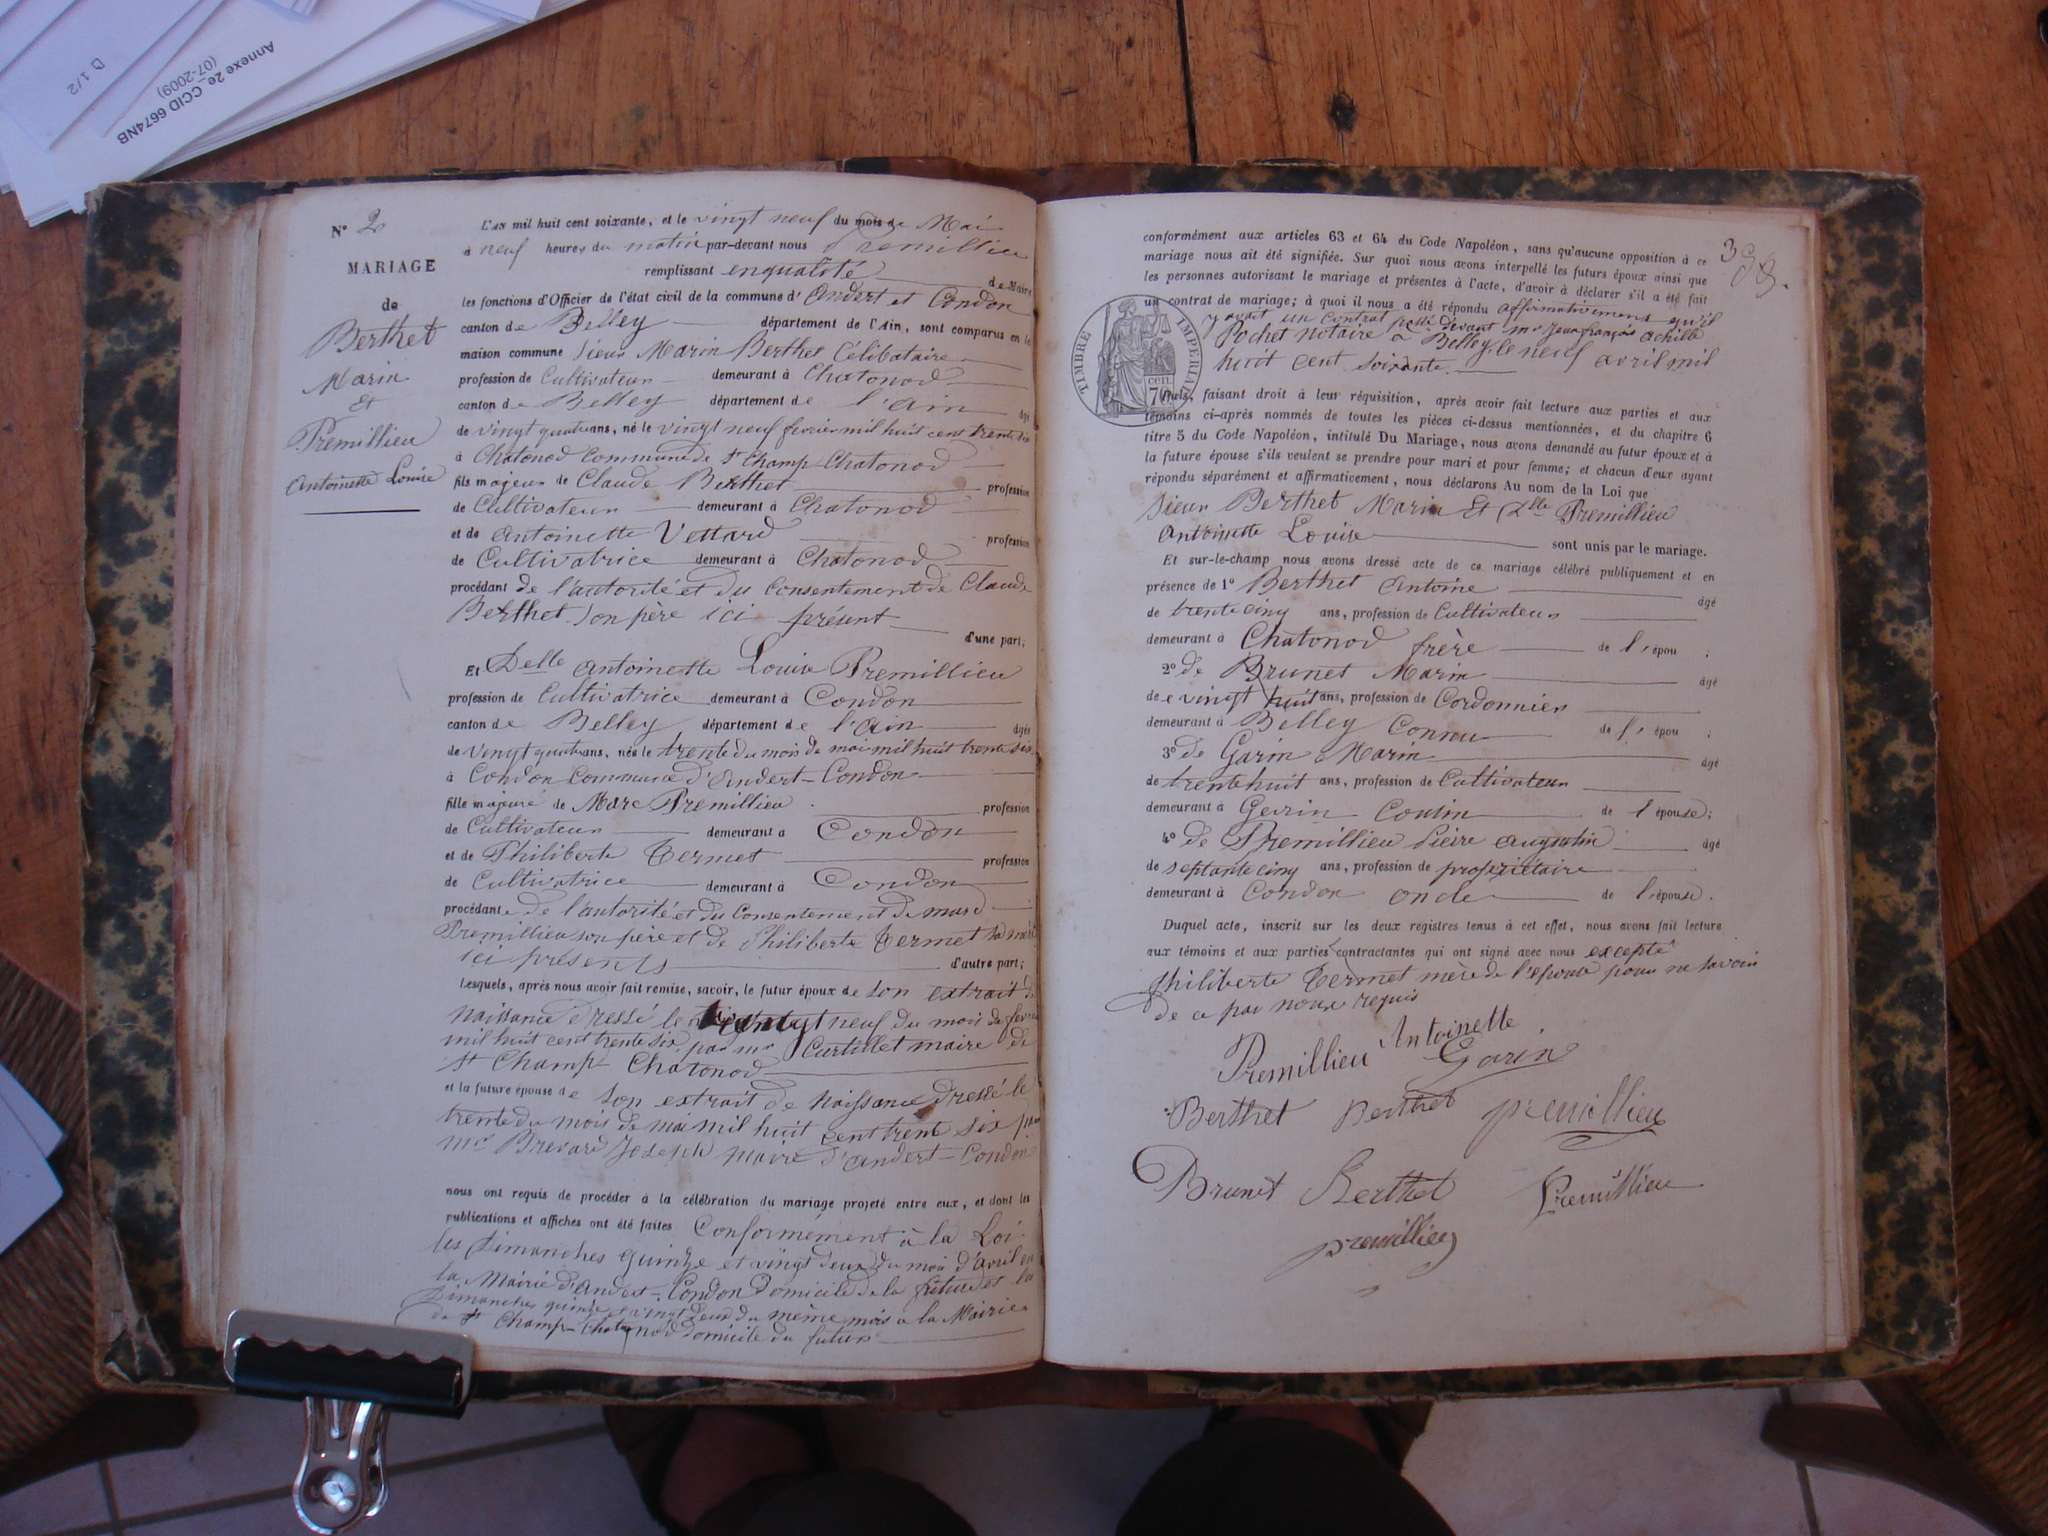 Annexe 2e_CCID 6674NB
(07-2009)
D 1/2
N° 2
MARIAGE
de
Berthet
Marin
Et
Premillieu
Antoinette Louise
L'AN mil huit cent soixante, et le vingt neuf du mois de Mai
à neuf heures du matin par-devant nous Premillieu
remplissant enqualité de Maire
les fonctions d'Officier de l'état civil de la commune d'Andert et Condon
canton de Belley département de l'Ain, sont comparus en la
maison commune Sieur Marin Berthet Célibataire
profession de Cultivateur demeurant à Chatonod
canton de Belley département de l'Ain âgé
de vingt quatre ans, né le vingt neuf fevrier mil huit cent trente six
à Chatonod Commune de St Champ Chatonod
fils majeur de Claude Berthet profession
de Cultivateur demeurant à Chatonod
et de Antoinette Vettard profession
de Cultivatrice demeurant à Chatonod
procédant de l'autorité et du Consentement de Claude
Berthet son père ici présent
d'une part;
Et Delle Antoinette Louise Premillieu
profession de Cultivatrice demeurant à Condon
canton de Belley département de l'Ain âgée
de vingt quatre ans, née le trente du mois de mai mil huit trente six
à Condon Commune d'Andert-Condon
fille majeure de Marc Premillieu profession
de Cultivateur demeurant à Condon
et de Philiberte Termet profession
de Cultivatrice demeurant à Condon
procédante de l'autorité et du Consentement de marc
Premillieu son père et de Philiberte Termet sa mère
ici présents d'autre part;
Lesquels, après nous avoir fait remise, savoir, le futur époux de son extrait de
naissance dressé le vingt neuf du mois de fevrier
mil huit cent trente six par mr Curtillet maire de
St Champ Chatonod
et la future épouse de son extrait de naissance dressé le
trente du mois de mai mil huit cent trente six par
mr Brevard Joseph maire d'Andert-Condon
nous ont requis de procéder à la célébration du mariage projeté entre eux, et dont les
publications et affiches ont été faites Conformément à la Loi
les Dimanches quinze et vingt deux du mois d'avril en
la Mairie d'Andert-Condon Domicile de la future et les
Dimanches quinze et vingt deux du même mois à la Mairie
de St Champ-Chatonod domicile du futur
conformément aux articles 63 et 64 du Code Napoléon, sans qu'aucune opposition à ce
mariage nous ait été signifiée. Sur quoi nous avons interpellé les futurs époux ainsi que
les personnes autorisant le mariage et présentes à l'acte, d'avoir à déclarer s'il a été fait
un contrat de mariage; à quoi il nous a été répondu affirmativement qu'il
y avait un contrat passé devant mr Jean françois achille
Pochet notaire à Belley le neuf avril mil
huit cent soixante.
TIMBRE IMPERIAL
70 cen.
faisant droit à leur réquisition, après avoir fait lecture aux parties et aux
témoins ci-après nommés de toutes les pièces ci-dessus mentionnées, et du chapitre 6
titre 5 du Code Napoléon, intitulé Du Mariage, nous avons demandé au futur époux et à
la future épouse s'ils veulent se prendre pour mari et pour femme; et chacun d'eux ayant
répondu séparément et affirmativement, nous déclarons Au nom de la Loi que
Sieur Berthet Marin Et Dlle Premillieu
Antoinette Louise sont unis par le mariage.
Et sur-le-champ nous avons dressé acte de ce mariage célébré publiquement et en
présence de 1° Berthet Antoine âgé
de trente cinq ans, profession de Cultivateur
demeurant à Chatonod frère de l'épou ;
2° de Brunet Marin âgé
de vingt huit ans, profession de Cordonnier
demeurant à Belley Connu de l'épou ;
3° de Garin Marin âgé
de trente huit ans, profession de Cultivateur
demeurant à Gevrin Cousin de l'épouse;
4° de Premillieu Pierre augustin âgé
de septante cinq ans, profession de propriétaire
demeurant à Condon oncle de l'épouse.
Duquel acte, inscrit sur les deux registres tenus à cet effet, nous avons fait lecture
aux témoins et aux parties contractantes qui ont signé avec nous excepté
philiberte Termet mère de l'épouse pour ne savoir
de ce par nous requis
Premillieu Antoinette
Garin
Berthet Berthet premillieu
Brunet Berthet Premillieu
premillieu